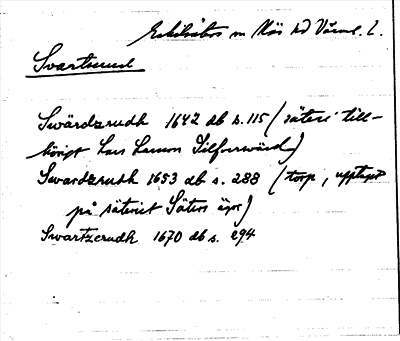 Eskilsäters sn Näs hd Värml. l.
Svartsrud
Swärdzrudh 1642 db s. 115 (säteri till-
hörigt Lars Larsson Silfversvärd)
Swardzrudh 1653 db s. 288 (torp, upptaget
på säteriet Säters ägor)
Swartzerudh 1670 db s. 294